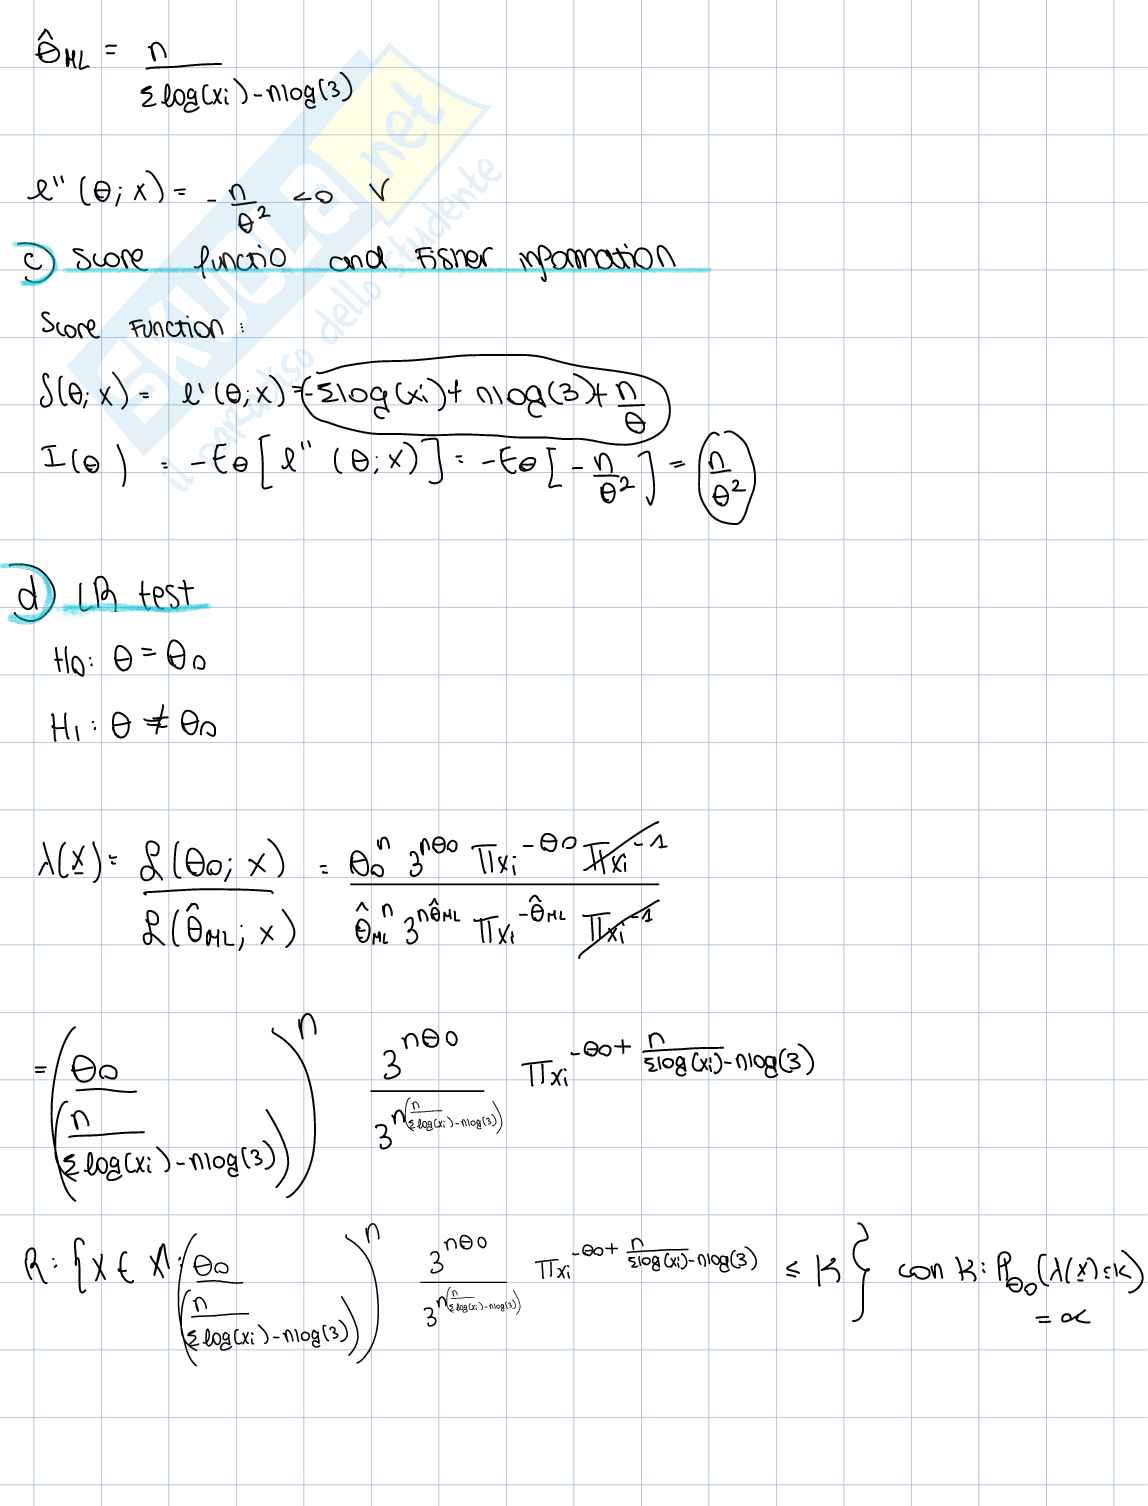 θ̂ML = n / (Σlog(xi) - nlog(3))
l''(θ; x) = - n/θ² <0 V
c) Score functio and Fisher information
Score Function:
S(θ; x) = l'(θ; x) = -Σlog(xi) + nlog(3) + n/θ
I(θ) = -Eθ[l''(θ; x)] = -Eθ[-n/θ²] = n/θ²
d) LR test
H0: θ = θ0
H1: θ ≠ θ0
λ(x) = L(θ0; x) / L(θ̂ML; x) = θ0^n 3^(nθ0) Πxi^(-θ0) Πxi^(-1) / θ̂ML^n 3^(nθ̂ML) Πxi^(-θ̂ML) Πxi^(-1)
= (θ0 / (n / (Σlog(xi) - nlog(3))))^n 3^(nθ0) / 3^(n(n / (Σlog(xi) - nlog(3)))) Πxi^(-θ0 + n / (Σlog(xi) - nlog(3)))
R: {x ∈ X: (θ0 / (n / (Σlog(xi) - nlog(3))))^n 3^(nθ0) / 3^(n(n / (Σlog(xi) - nlog(3)))) Πxi^(-θ0 + n / (Σlog(xi) - nlog(3))) ≤ K} con K: Pθ0(λ(x) ≤ K)
= α
SKUOLA.net
il paradiso dello studente